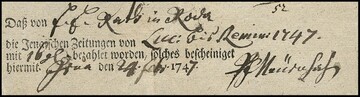 52
Daß von F. F. Rath in Roda
die Jenaischen Zeitungen von Luc: bis Remin: 1747.
mit 16 gl bezahlet worden, solches bescheiniget
hiermit. Jena den 24. 1747.